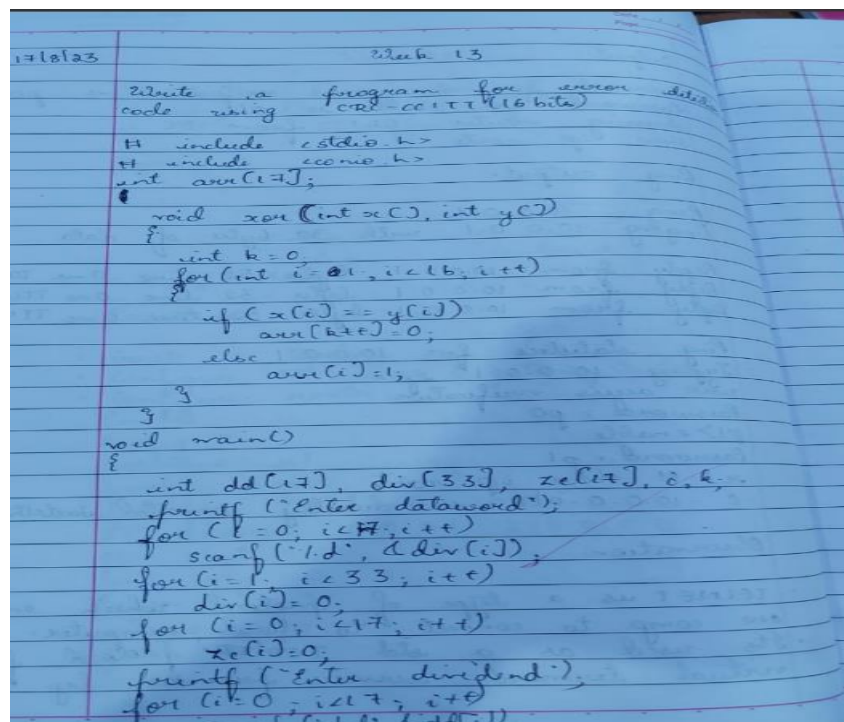 17/8/23
Week 13
Write a program for error detec
code using CRC-CCITT (16 bits)
# include <stdio.h>
# include <conio.h>
int arr[17];
void xor (int x[], int y[])
{
int k=0;
for (int i=1; i<16; i++)
{
if (x[i] == y[i])
arr[k++]=0;
else
arr[i]=1;
}
}
void main()
{
int dd[17], div[33], ze[17], i, k;
printf ("Enter dataword");
for (i=0; i<17; i++)
scanf ("%d", &div[i]);
for (i=1; i<33; i++)
div[i]=0;
for (i=0; i<17; i++)
ze[i]=0;
printf ("Enter dividend");
for (i=0; i<17; i++)